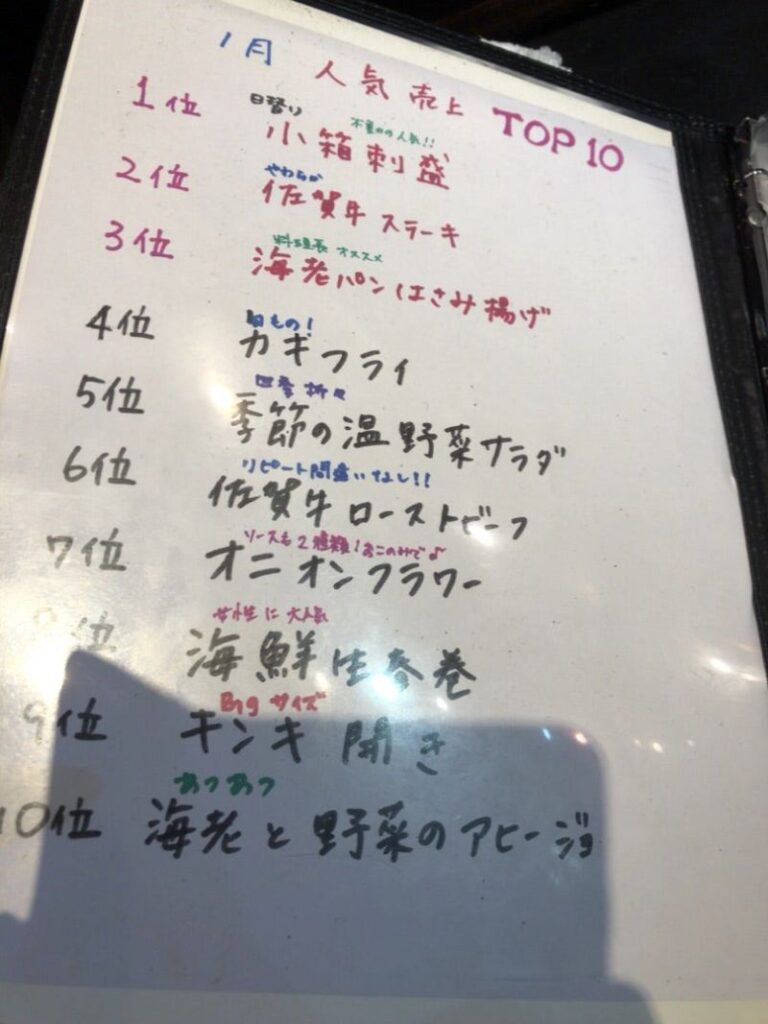 1月 人気売上 TOP10
1位 日替り 不動の人気!!
小箱刺盛
2位 やわらか
佐賀牛ステーキ
3位 料理長オススメ
海老パンはさみ揚げ
4位 旬もの!
カキフライ
5位 四季折々
季節の温野菜サラダ
6位 リピート間違いなし!!
佐賀牛ローストビーフ
7位 ソースも2種類!おこのみで♪
オニオンフラワー
8位 女性に大人気
海鮮生春巻
9位 Bigサイズ
キンキ開き
10位 あつあつ
海老と野菜のアヒージョ